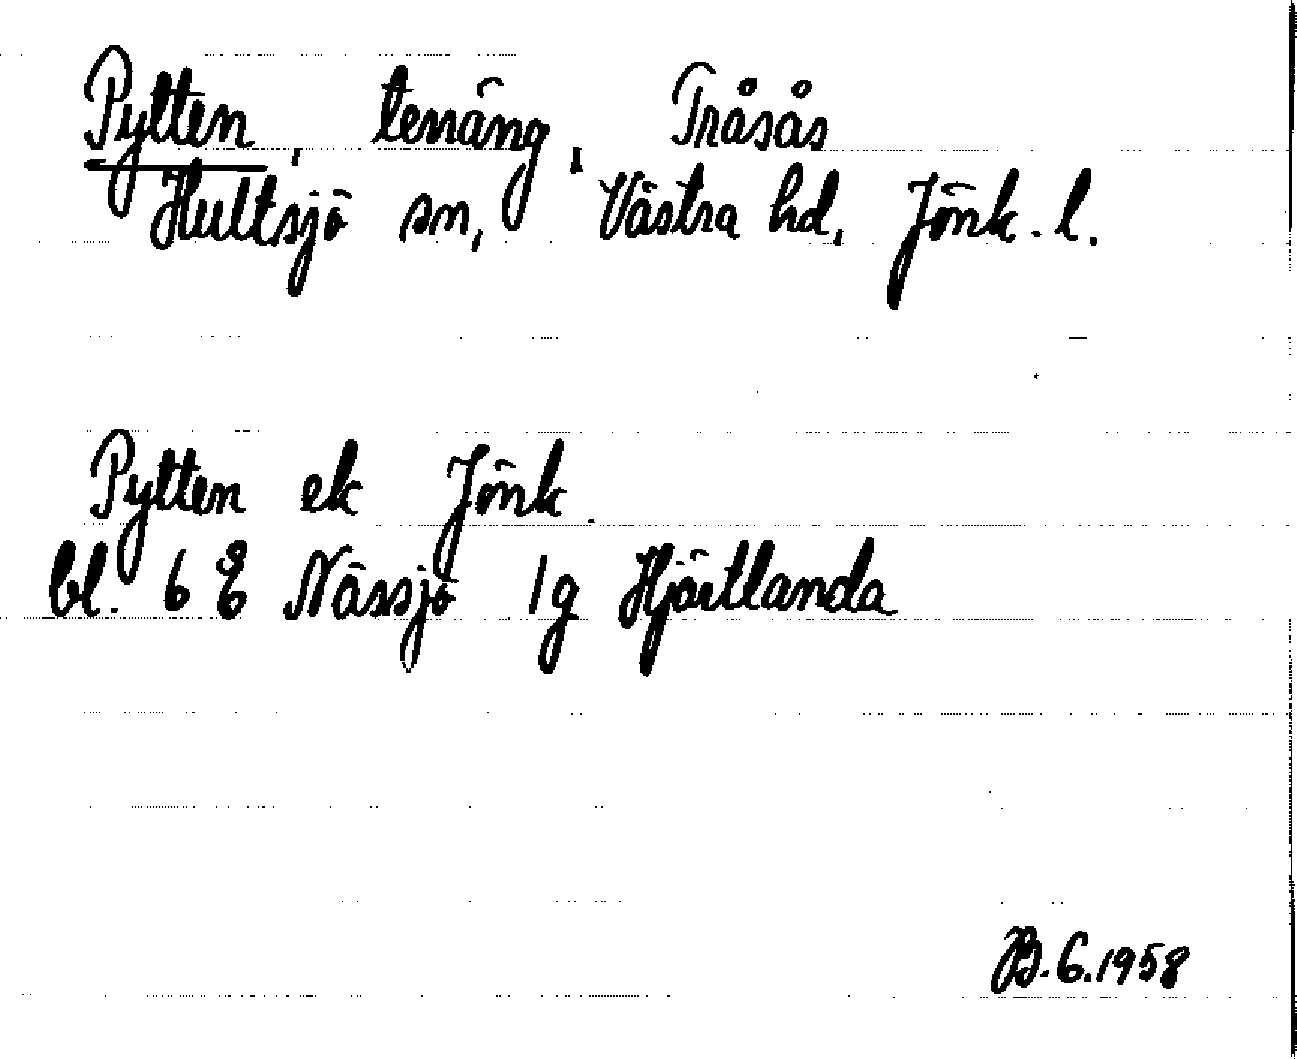 Pytten, terräng, Tråsås
Hultsjö sn, Västra hd, Jönk. l.
Pytten ek Jönk.
bl. 6 E Nässjö 1g Hjärtlanda
B.G.1958